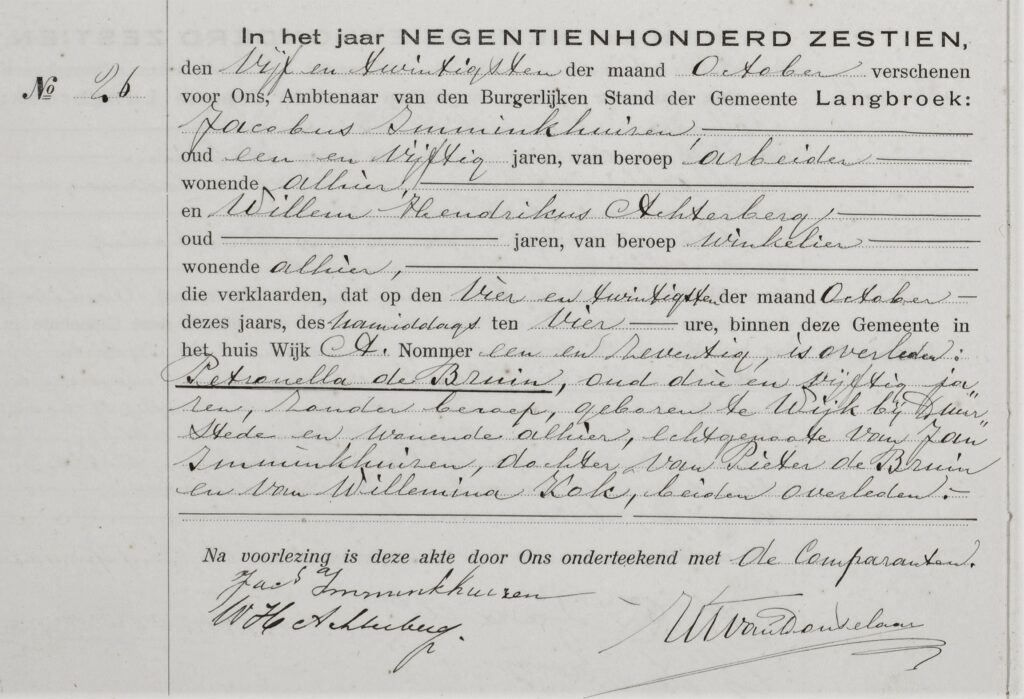 In het jaar NEGENTIENHONDERD ZESTIEN,
No 26
den Vijf en twintigsten der maand October verschenen
voor Ons, Ambtenaar van den Burgerlijken Stand der Gemeente Langbroek:
Jacobus Imminkhuizen,
oud een en vijftig jaren, van beroep arbeider
wonende alhier,
en Willem Hendrikus Achterberg,
oud jaren, van beroep winkelier
wonende alhier,
die verklaarden, dat op den Vier en twintigsten der maand October
dezes jaars, des namiddags ten Vier ure, binnen deze Gemeente in
het huis Wijk A. Nommer een en zeventig, is overleden:
Petronella de Bruin, oud drie en vijftig ja„
ren, zonder beroep, geboren te Wijk bij Duur„
stede en wonende alhier, echtgenoote van Jan
Imminkhuizen, dochter van Pieter de Bruin
en van Willemina Kok, beiden overleden.
Na voorlezing is deze akte door Ons onderteekend met de Comparanten.
Jacs Imminkhuizen
WH Achterberg.
van Donselaar